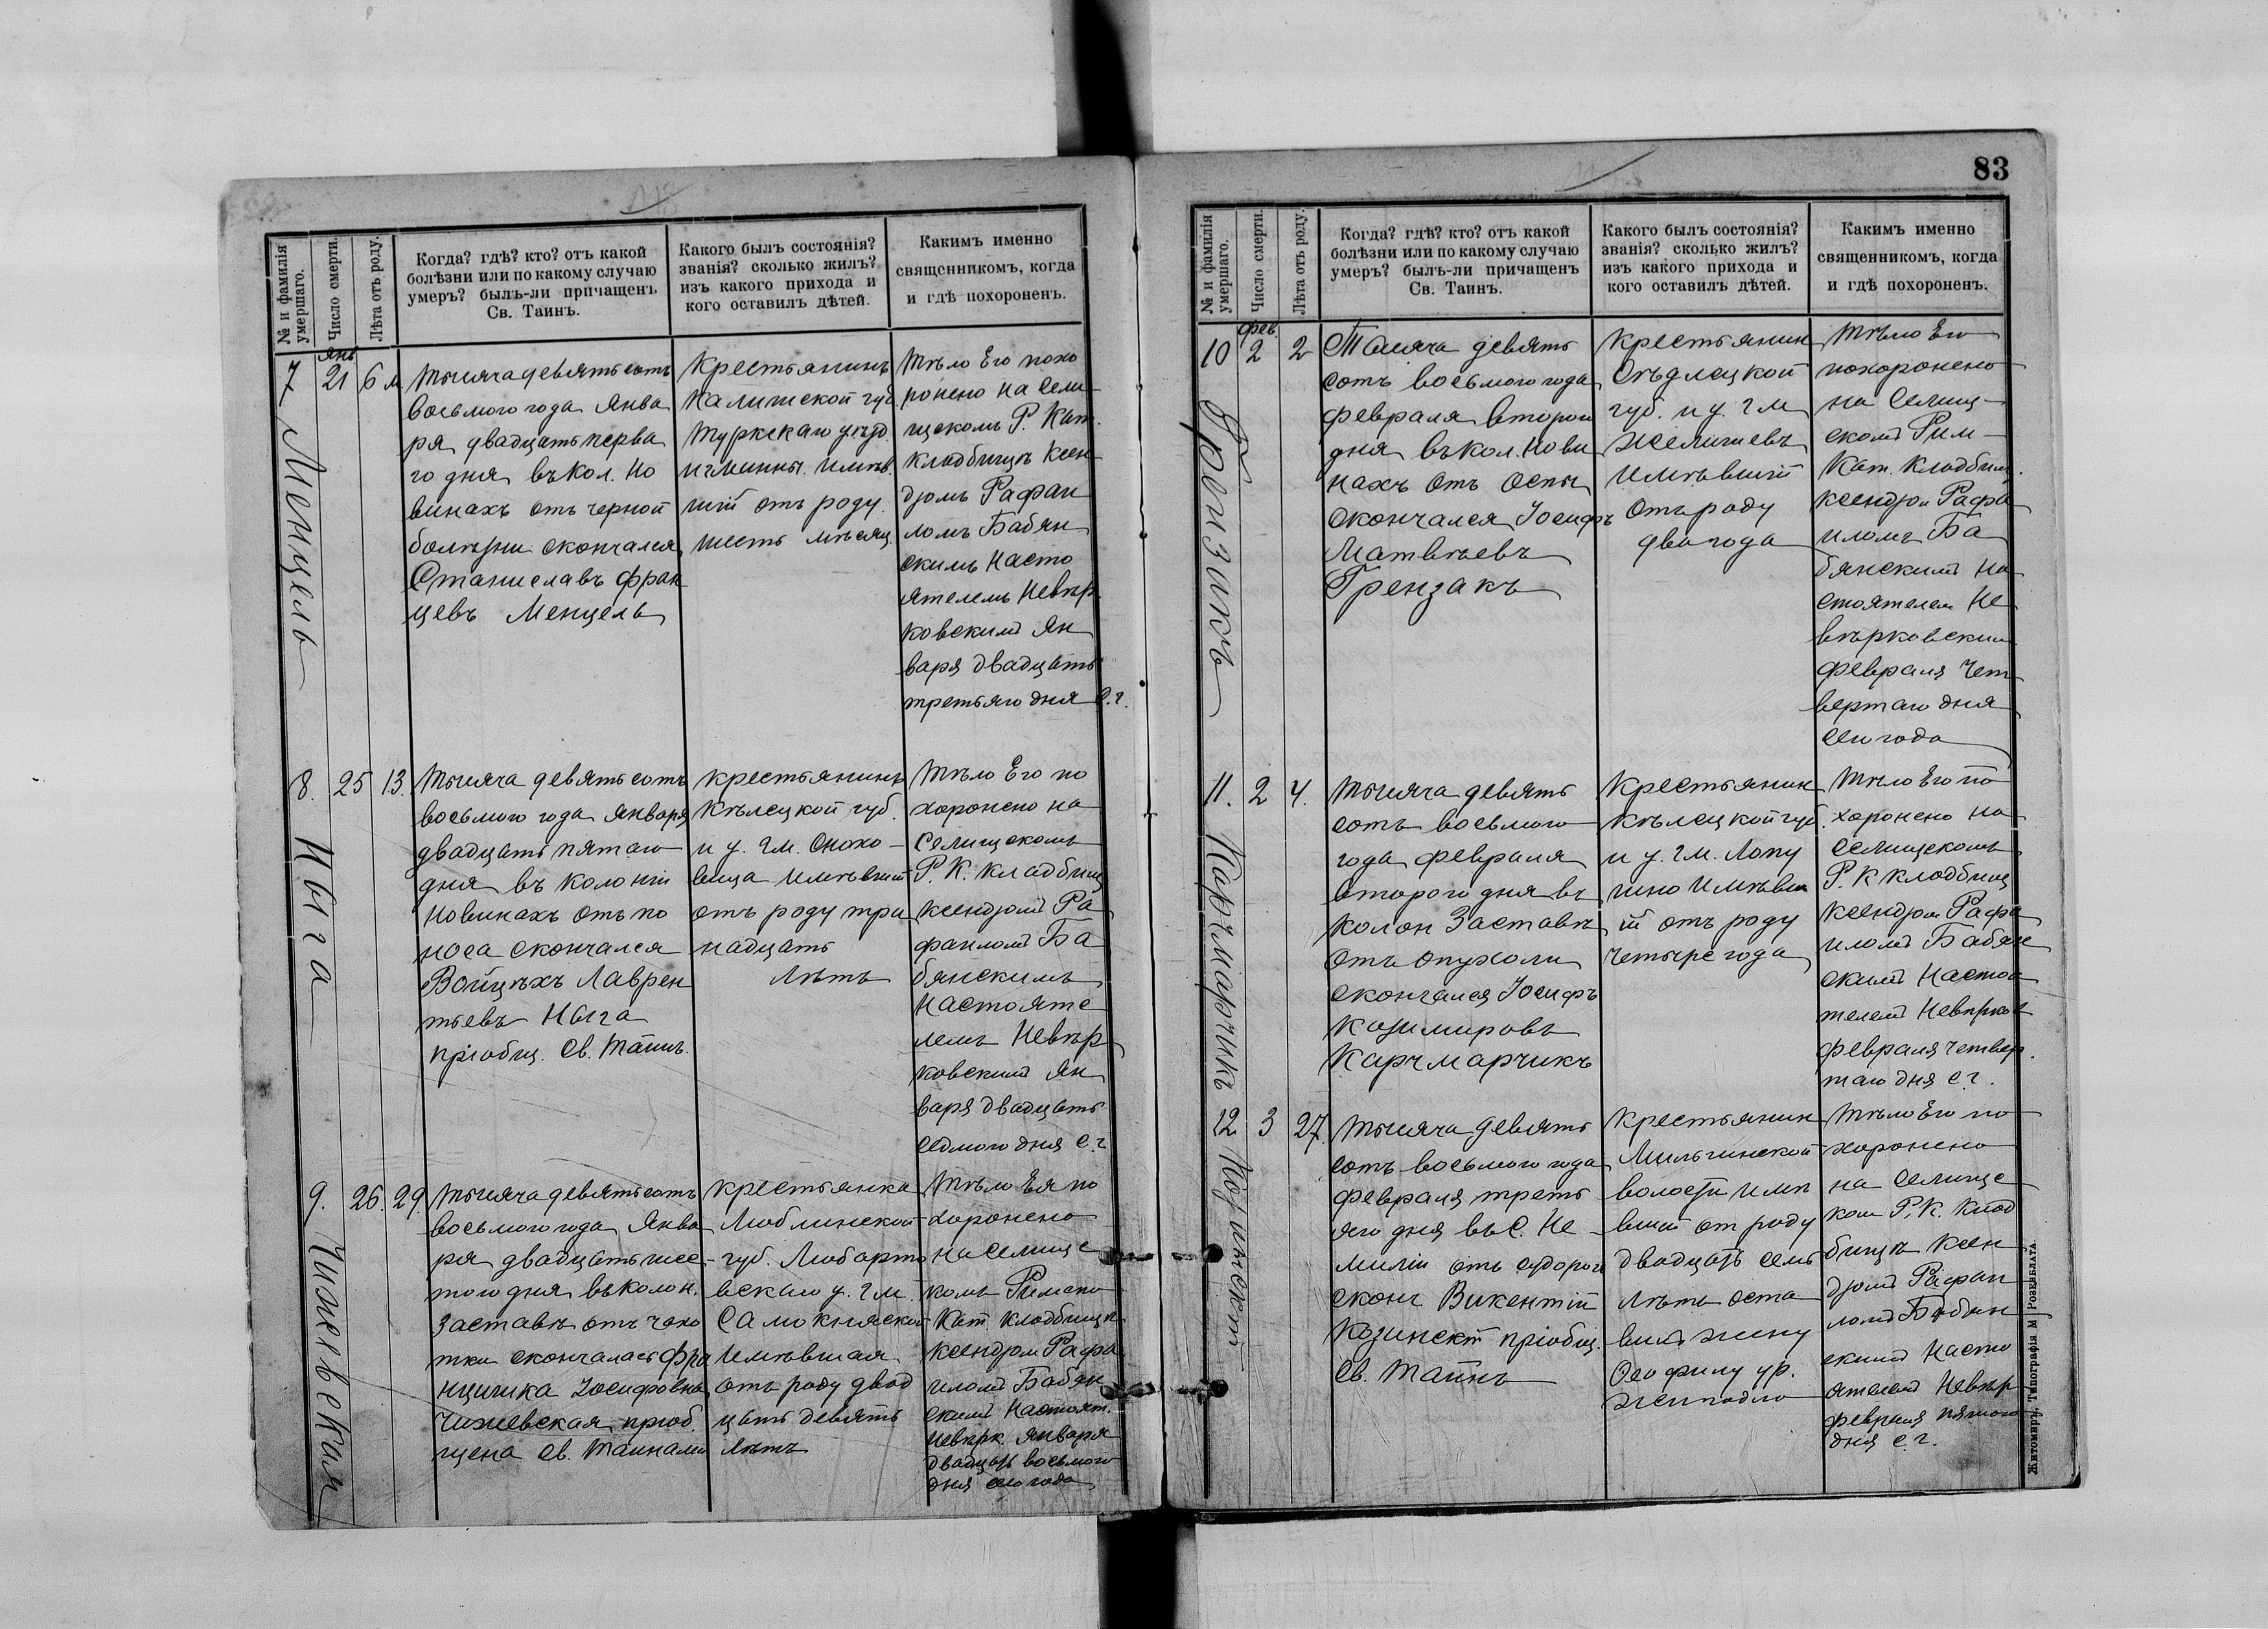 № и фамилія умершаго.
Число смерти.
Лѣта отъ роду.
Когда? гдѣ? кто? отъ какой
болѣзни или по какому случаю
умеръ? былъ-ли причащенъ
Св. Таинъ.
Какого былъ состоянія?
званія? сколько жилъ?
изъ какого прихода и
кого оставилъ дѣтей.
Какимъ именно
священникомъ, когда
и гдѣ похороненъ.
7
Менцель
янв
21
6 м
Тысяча девятьсотъ
восьмого года Янва
ря двадцать перва
го дня въ Кол. Но
винахъ отъ черной
болѣзни скончался
Станиславъ Фран
цевъ Менцель
Крестьянинъ
Калишской губ.
Туркскаго уѣзд.
и гмины. имѣв
шій отъ роду
шесть мѣсяц
Тѣло Его похо
ронено на Сели
щскомъ Р. Кат.
кладбищѣ Ксен
дзомъ Рафаи
ломъ Бабян
скимъ Насто
ятелемъ Невѣр
ковскимъ Ян
варя двадцать
третьяго дня с.г.
8.
Ныга
25
13.
Тысяча девятьсотъ
восьмого года Января
двадцать пятаго
дня въ колоніи
Новинахъ отъ по
носа скончался
Войцѣхъ Лаврен
тьевъ Ныга
пріобщ. Св. Таинъ.
крестьянинъ
Кѣлецкой губ.
и у. гм. Сноко-
вица имѣвшій
отъ роду три
надцать
лѣтъ
Тѣло Его по
хоронено на
Селищскомъ
Р. К. кладбищ
ксендзомъ Ра
фаиломъ Ба
бянскимъ
Настояте
лемъ Невѣр
ковскимъ Ян
варя двадцать
седмого дня с.г
9.
Чижевская
26.
29.
Тысяча девятьсотъ
восьмого года Янва
ря двадцать шес-
того дня въ колон.
Заставѣ отъ чахо
тки скончалась Фра
нцишка Іосифовна
Чижевская пріоб
щена Св. Таинами
крестьянка
Люблинской
губ. Любарто
вскаго у. гм.
Самокняской
имѣвшая
отъ роду двад
цать девять
лѣтъ
Тѣло Ея по
хоронено
на Селищс
комъ Римско
Кат. кладбищѣ
ксендзом Рафа
иломъ Бабян
скимъ Настоят.
Невѣрк. Января
двадцать восьмого
дня сего года
83
№ и фамилія умершаго.
Число смерти.
Лѣта отъ роду.
Когда? гдѣ? кто? отъ какой
болѣзни или по какому случаю
умеръ? былъ-ли причащенъ
Св. Таинъ.
Какого былъ состоянія?
званія? сколько жилъ?
изъ какого прихода и
кого оставилъ дѣтей.
Какимъ именно
священникомъ, когда
и гдѣ похороненъ.
10
Грензакъ
фев
2
2
Тысяча девять
сотъ восьмого года
февраля второго
дня въ кол. Нови
нахъ отъ Оспы
скончался Іосифъ
Матвѣевъ
Грензакъ
Крестьянин
Сѣдлецкой
губ. и у. гм
Желишевъ
имѣвшій
отъ роду
два года
Тѣло Его
похоронено
на Селищ-
скомъ Рим-
Кат. кладбищ.
ксендзом Рафа
иломъ Ба
бянскимъ На
стоятелем Не
вѣрковским
февраля Чет
вертаго дня
сего года
11.
Карчмарчикъ
2
4.
Тысяча девять
сотъ восьмого
года февраля
второго дня въ
колон Заставѣ
отъ опухоли
скончался Іосифъ
Казимировъ
Карчмарчикъ
Крестьянин
Кѣлецкой губ.
и у. гм. Лопу
шно имѣвш
ій отъ роду
четыре года
Тѣло Его по
хоронено на
селищскомъ
Р. К кладбищ
Ксендзом Рафа
иломъ Бабян
скимъ Настоя
телемъ Невѣрков
февраля четвер.
таго дня с.г.
12
Козинскій
3
27.
Тысяча девять
сотъ восьмого года
февраля треть
яго дня въ С. Не
миліи отъ судорог
сконч Викентій
Козинскій пріобщ.
Св. Таинъ
Крестьянин
волости имѣ
вшій от роду
двадцать семь
лѣтъ оста
вилъ жену
Ѳеофилу ур.
Тѣло Его по
хоронено
на Селищс
ком Р. К. Клад
бищѣ Ксен
дзомъ Рафаи
ломъ Бабян
скимъ Насто
ятелемъ Невѣр
февраля пятого
дня с.г.
Житомиръ, Типографія М РОЗЕНБЛАТА